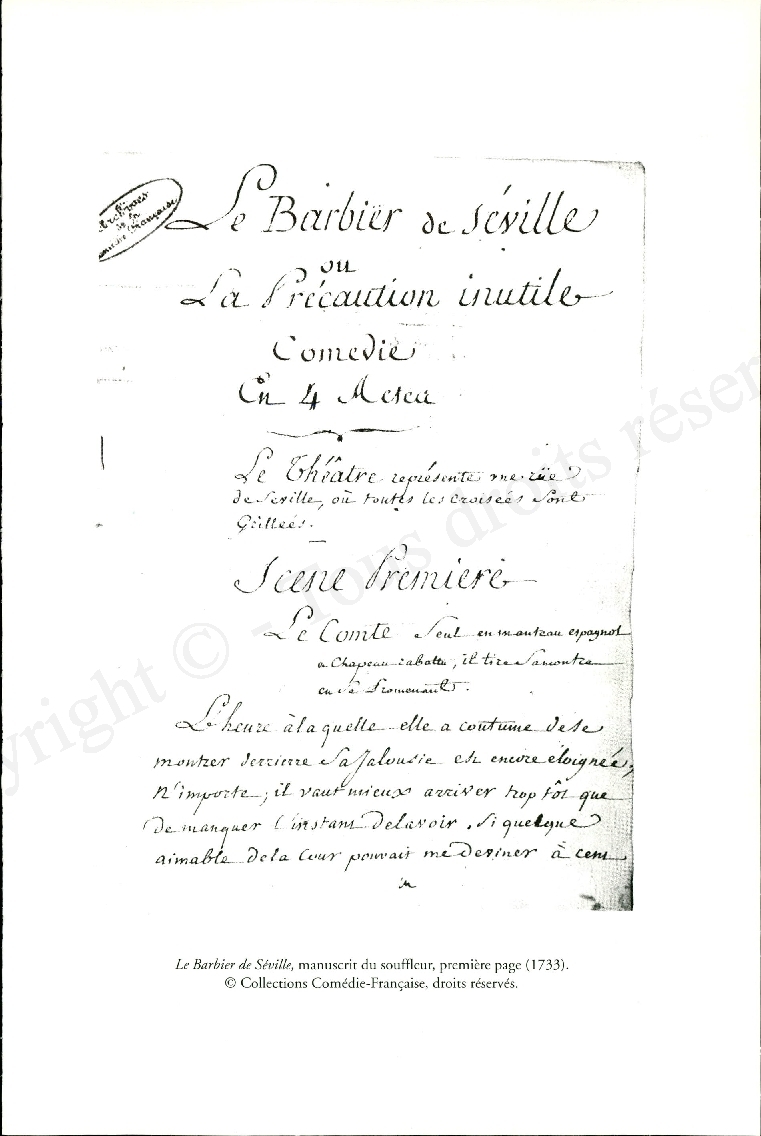 Archives
de la
Comédie Française
Le Barbier de Séville
ou
La Précaution inutile
Comedie
En 4 Actes
Le Théâtre représente une rüe
de Seville, où toutes les croisées sont
Grillées.
Scene Premiere
Le Comte Seul en manteau espagnol
a Chapeau rabattu, il tire Samontre
en Se Promenant.
L'heure àlaquelle elle a coutume dese
montrer derrierre Sa Jalousie est encore éloignée,
N'importe; il vaut mieux arriver trop tôt que
de manquer l'instant delavoir. Si quelque
aimable dela Cour pouvait me deviner à cent
Le Barbier de Séville, manuscrit du souffleur, première page (1733).
© Collections Comédie-Française, droits réservés.
Copyright © - Tous droits réser